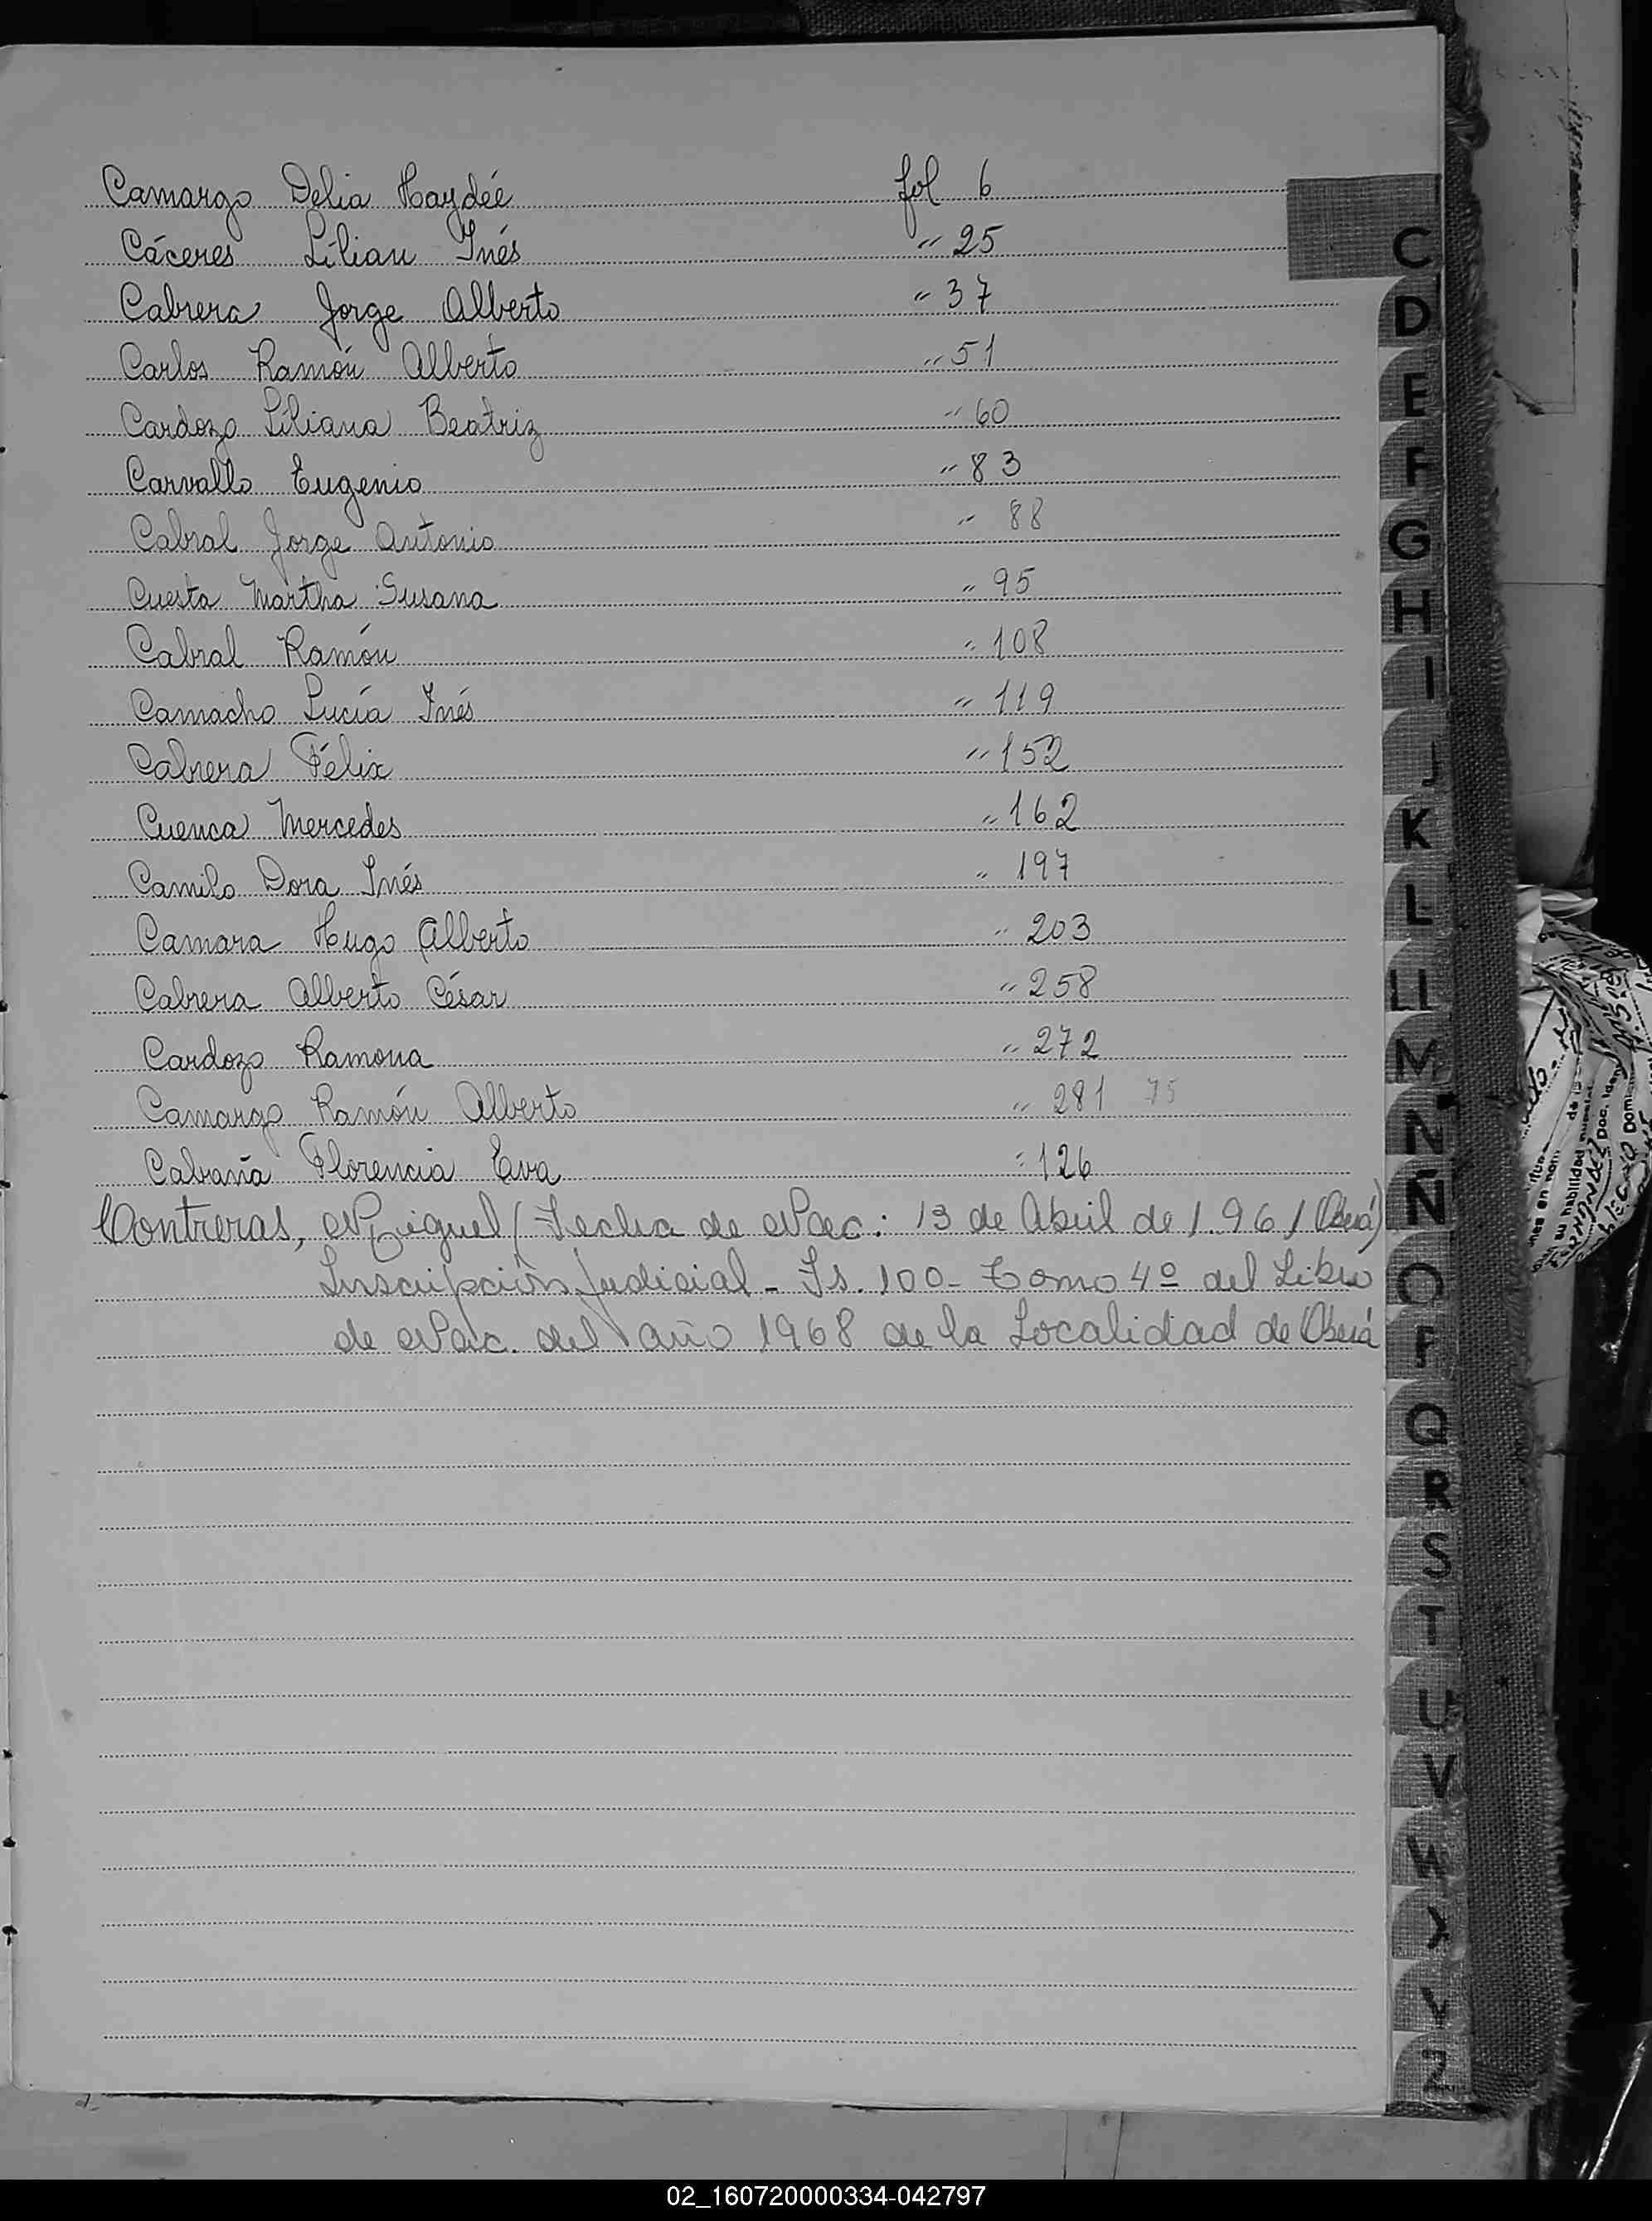 Camargo Delia Haydée fol 6
Cáceres Lilian Inés " 25
Cabrera Jorge Alberto " 37
Carlos Ramón Alberto " 51
Cardozo Liliana Beatriz " 60
Carvallo Eugenio " 83
Cabral Jorge Antonio " 88
Cuesta Martha Susana " 95
Cabral Ramón " 108
Camacho Lucía Inés " 119
Cabrera Félix " 152
Cuenca Mercedes " 162
Camilo Dora Inés " 197
Camara Hugo Alberto " 203
Cabrera Alberto César " 258
Cardozo Ramona " 272
Camargo Ramón Alberto " 281 75
Cabaña Florencia Eva " 126
Contreras, Miguel (Fecha de Nac: 13 de Abril de 1.961 Oberá)
Inscripción Judicial - Fs. 100 - Tomo 4º del Libro
de Nac. del año 1968 de la Localidad de Oberá
C
D
E
F
G
H
I
J
K
L
Ll
M
N
Ñ
O
P
Q
R
S
T
U
V
W
X
Y
Z
02_160720000334-042797